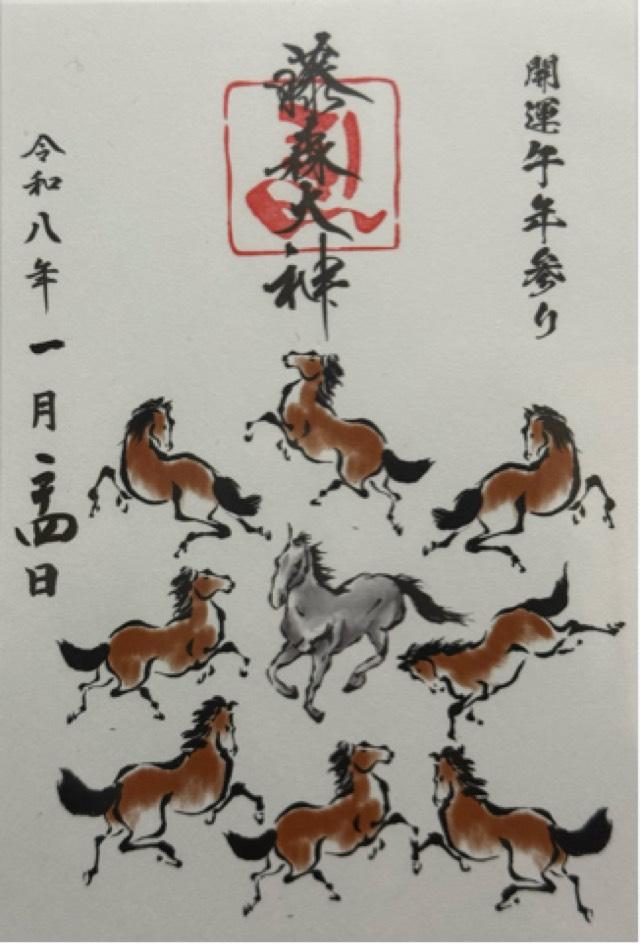 開運午年参り
藤森大神
令和八年一月二十四日